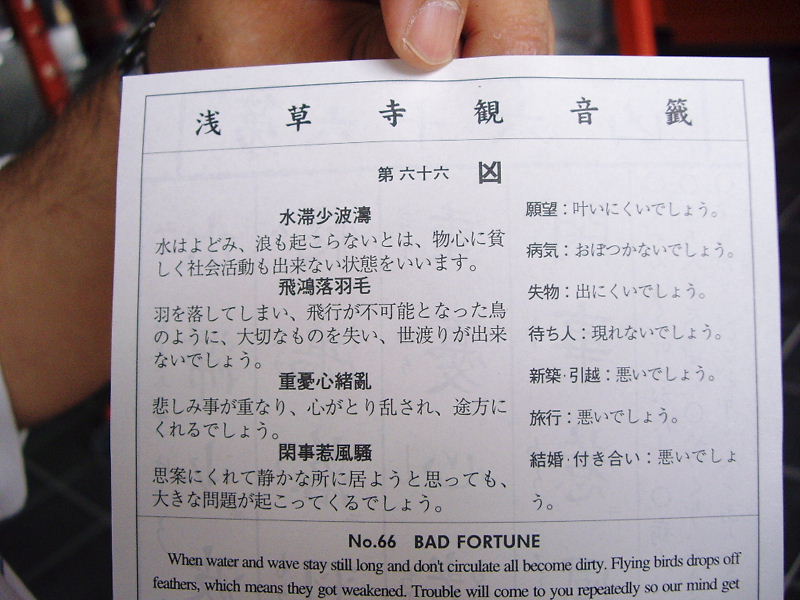 浅草寺観音籤
第六十六 凶
水滞少波濤
水はよどみ、浪も起こらないとは、物心に貧
しく社会活動も出来ない状態をいいます。
飛鴻落羽毛
羽を落してしまい、飛行が不可能となった鳥
のように、大切なものを失い、世渡りが出来
ないでしょう。
重憂心緒亂
悲しみ事が重なり、心がとり乱され、途方に
くれるでしょう。
閑事惹風騒
思案にくれて静かな所に居ようと思っても、
大きな問題が起こってくるでしょう。
願望：叶いにくいでしょう。
病気：おぼつかないでしょう。
失物：出にくいでしょう。
待ち人：現れないでしょう。
新築·引越：悪いでしょう。
旅行：悪いでしょう。
結婚·付き合い：悪いでしょ
う。
No.66 BAD FORTUNE
When water and wave stay still long and don't circulate all become dirty. Flying birds drops off
feathers, which means they got weakened. Trouble will come to you repeatedly so our mind get